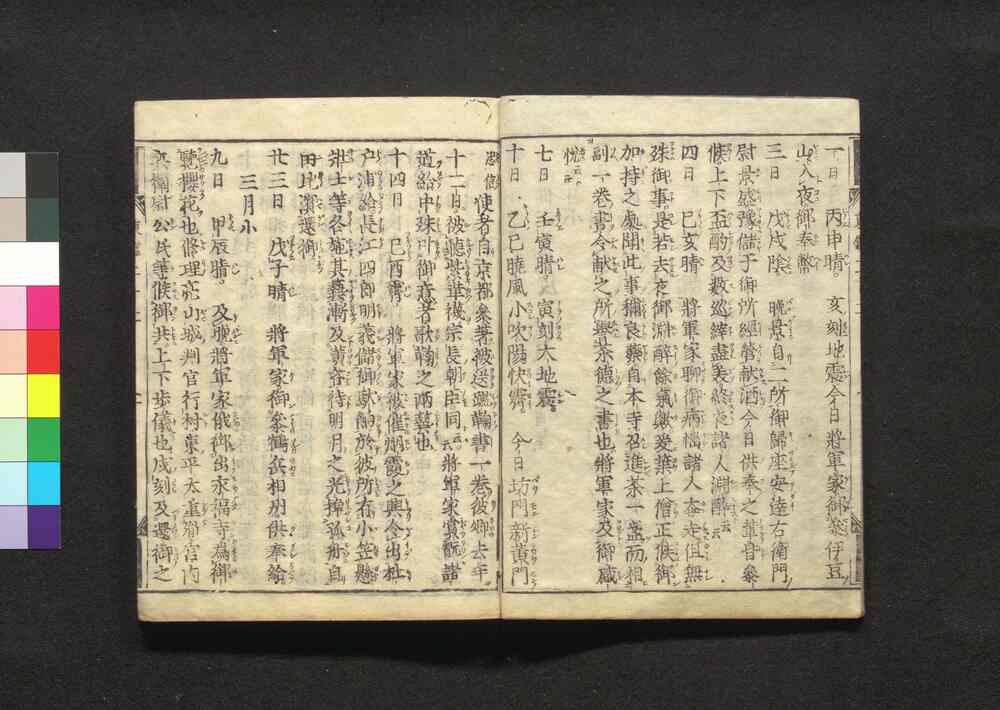 一日　丙申晴。亥刻地震今日將軍家御參伊豆
山入夜御奉幣
三日　戊戌陰　晩景自二所御歸座安達右衛門
尉景盛豫儲于御所經營献酒今日供奉之輩皆參
候上下盃酌及数巡縡盡美終夜諸人淵酔云云
四日　己亥晴　將軍家聊御病惱諸人奔走但無
殊御事是若去夜御淵醉餘氣歟爰葉上僧正候御
加持之處聞此事稱良藥自本寺召進茶一盞而相
副一巻書令献之所譽茶德之書也將軍家及御感
悦云云
七日　壬寅晴　寅刻大地震
十日　乙巳曉風小吹陽快霽　今日坊門新黄門
忠信　使者自京都參著被送進翰書一巻彼卿去年
十二日被聴
長朝臣同云云將軍家賞翫諸
道給中殊叶御意者歌鞠之両藝也
十四日　己酉霽　將軍家被催烟霞之興令出杜
戸浦給長江四郎明義儲御駄餉於彼所有小笠懸
壯士等各施其藝漸及黄昏待明月之光掉孤舟自
由比濱還御
廿三日　戊子晴　將軍家御參鶴岳相州供奉給
三月小
九日　甲辰晴。及晩將軍家俄御出永福寺爲御
覽櫻花也修理亮山城判官行村東平太重胤宮内
兵衛尉公氏等候御共上下歩儀也戌刻及還御之